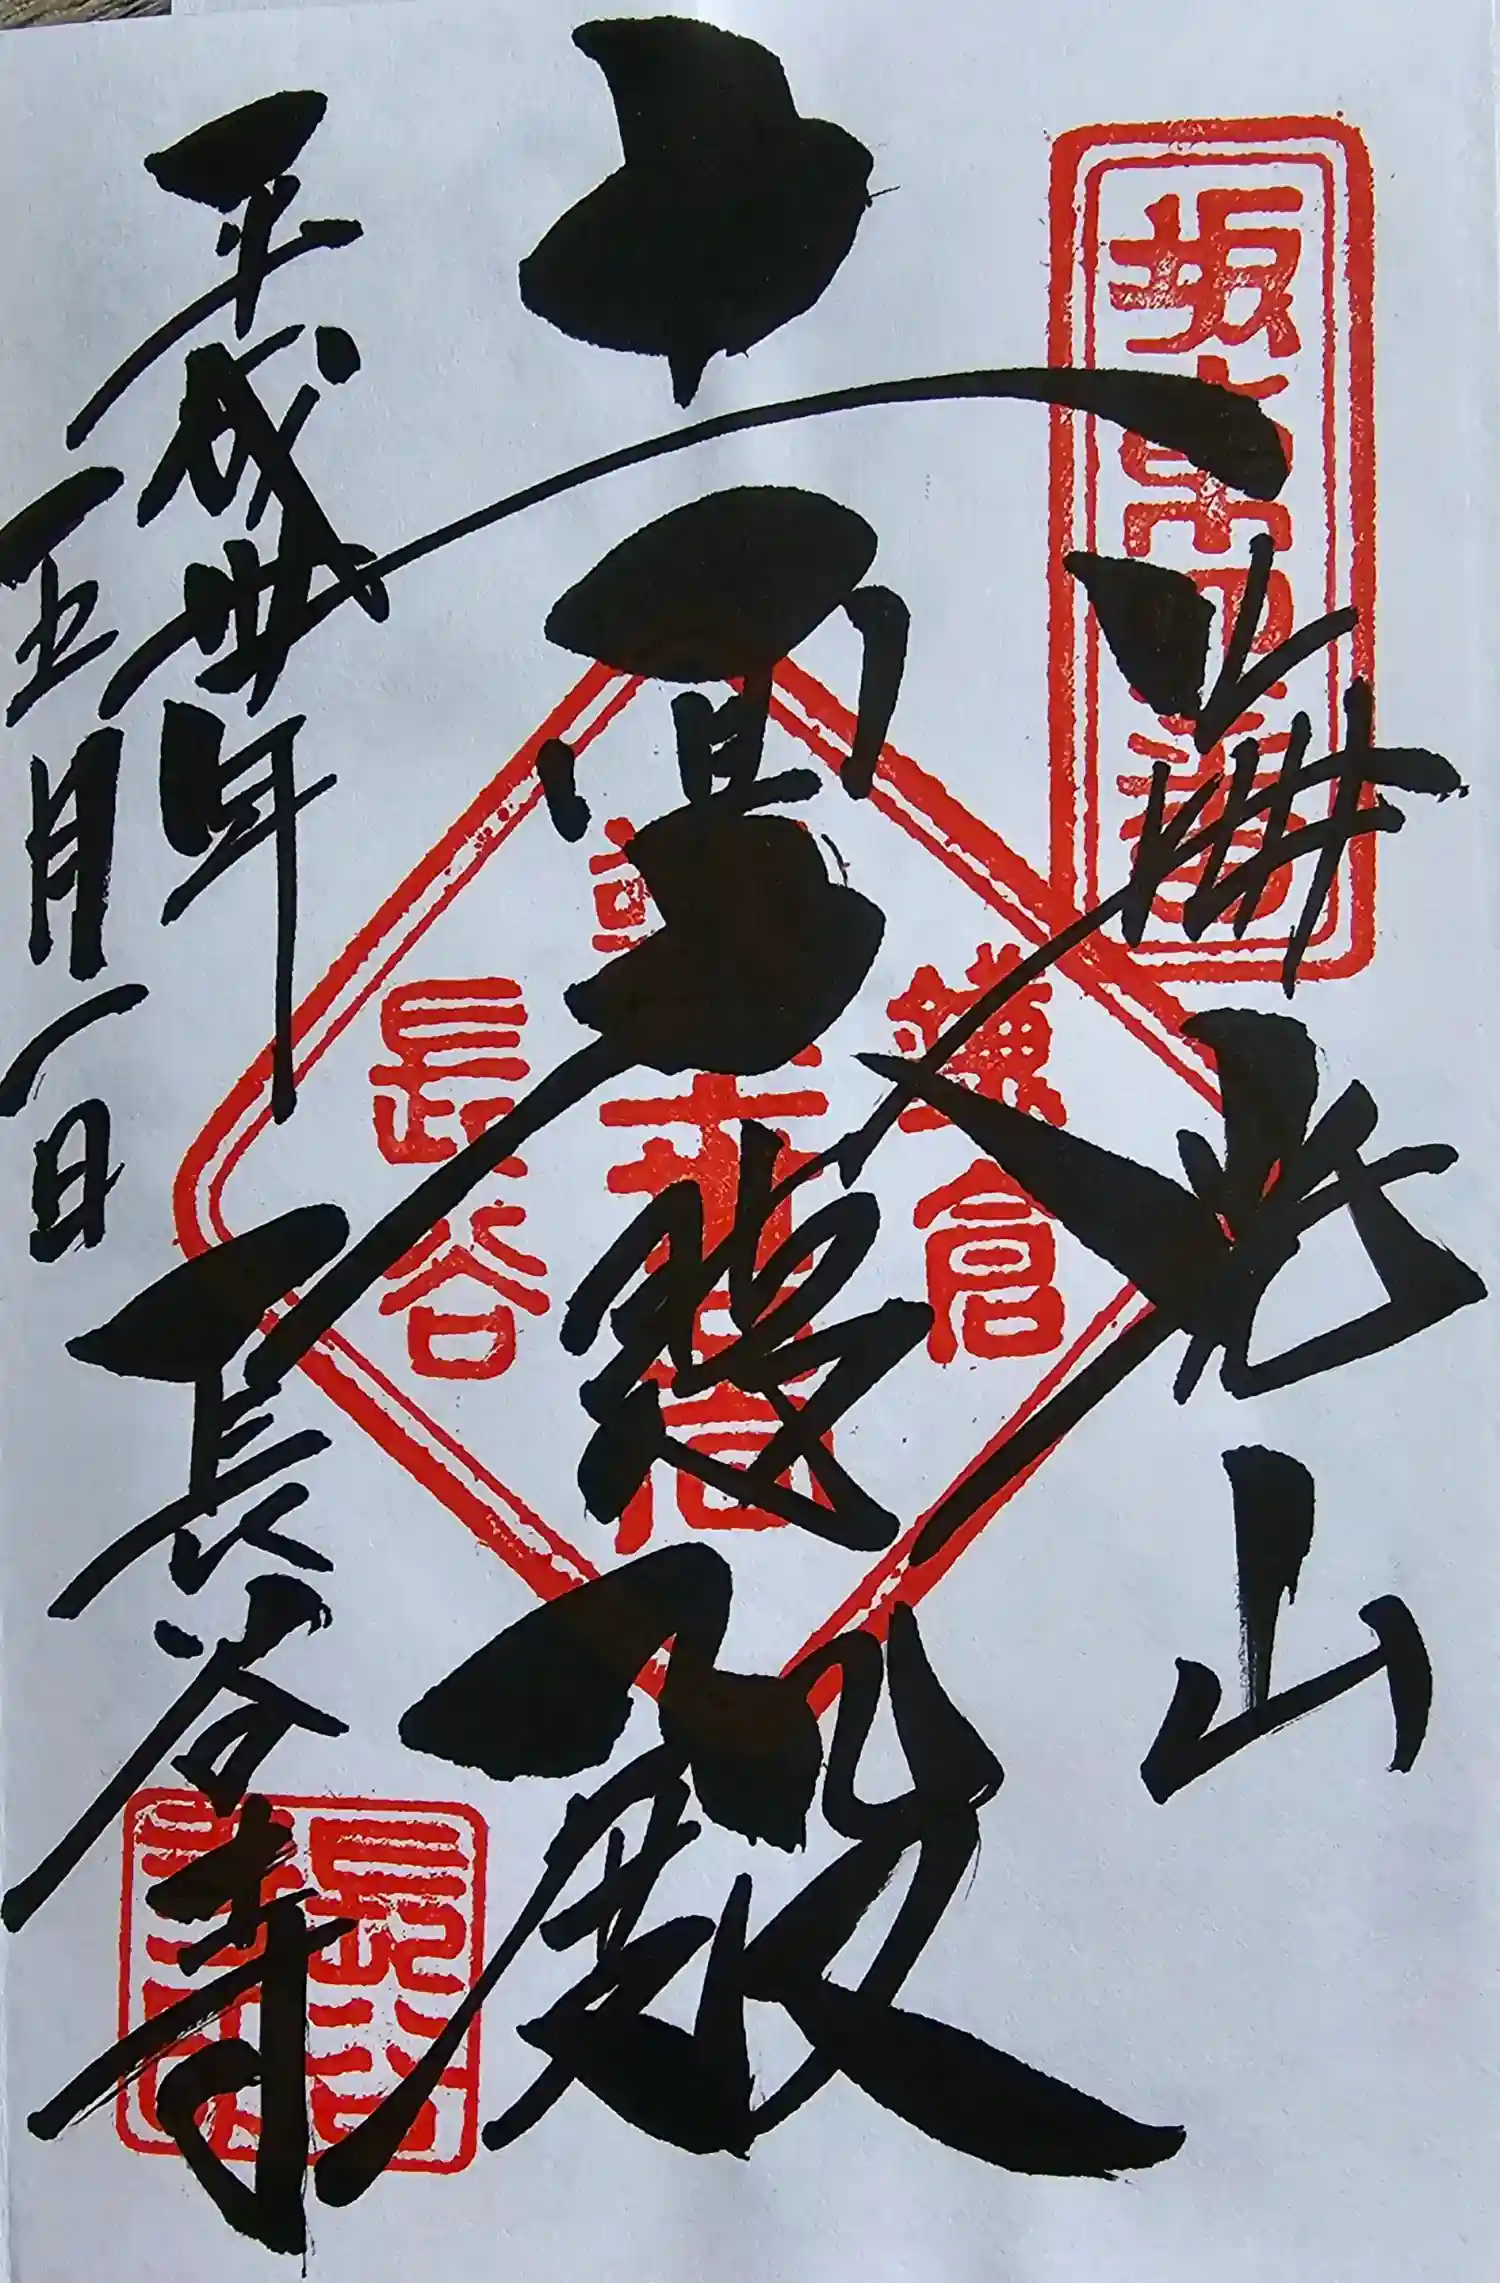 坂東四番
海光山
十一面大悲殿
鎌倉
長谷
平成丗年
五月一日
長谷寺
長谷寺印